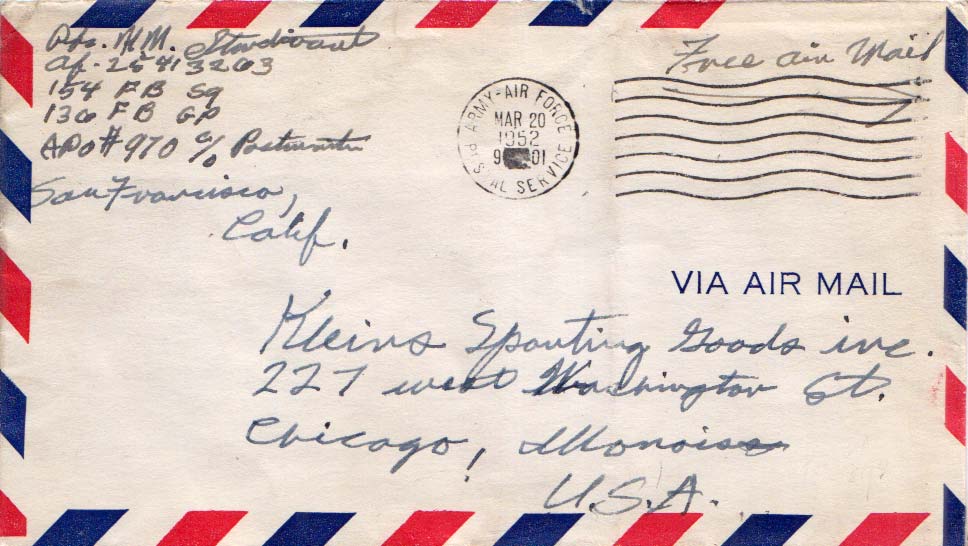 Pfc. H.M. Sturdivant
Af. 25413203
154 F B Sq
136 F B GP
APO # 970 c/o Postmaster
San Francisco,
Calif.
Free air Mail
ARMY-AIR FORCE
MAR 20
1952
9 01
POSTAL SERVICE
VIA AIR MAIL
Kleins Sporting Goods inc.
227 west Washington St.
Chicago, Illonois
U.S.A.